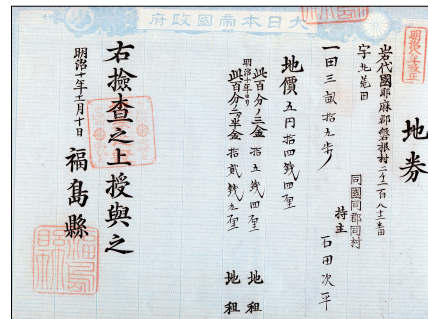 大日本帝國政府
明治八年改正
地券
岩代國耶麻郡磐根村二千三百八十三番
字北荒田
同國同郡同村
持主 石田次平
一田三畝拾九歩
地價五円拾四銭四厘
此百分ノ三金 拾五銭四厘 地租
明治十年ヨリ
此百分ノ二ヶ半金 拾貳銭九厘 地租
右檢査之上授與之
明治十年 月十日 福島縣